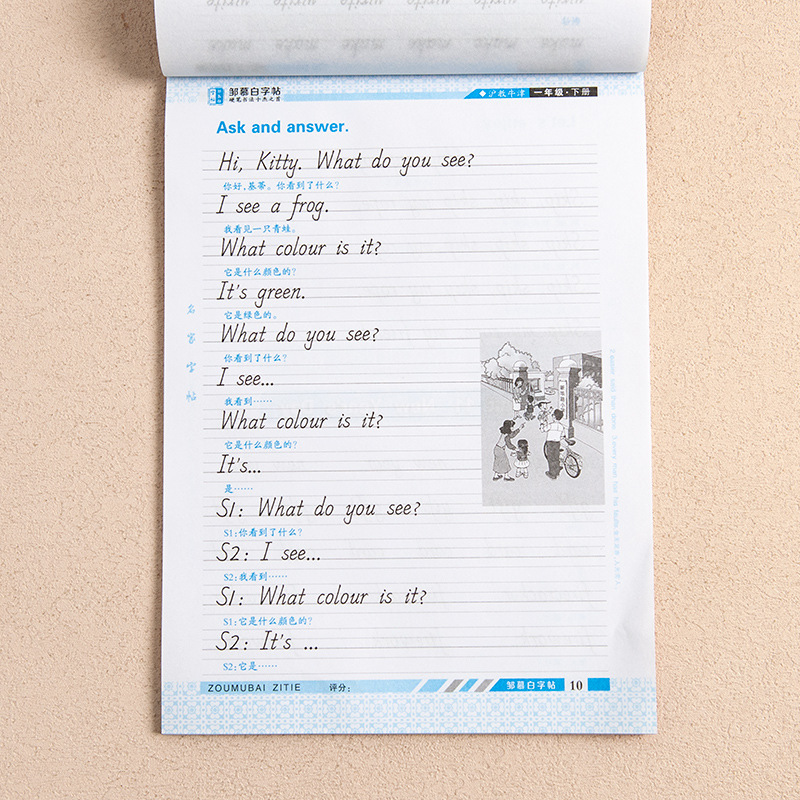 邹慕白字帖
硬笔书法十杰之首
◆沪教牛津 一年级·下册
Ask and answer.
Hi, Kitty. What do you see?
你好,基蒂。你看到了什么?
I see a frog.
我看见一只青蛙。
What colour is it?
它是什么颜色的?
It's green.
它是绿色的。
What do you see?
你看到了什么?
I see...
我看到……
What colour is it?
它是什么颜色的?
It's...
是……
S1: What do you see?
S1:你看到了什么?
S2: I see...
S2:我看到……
S1: What colour is it?
S1:它是什么颜色的?
S2: It's ...
S2:它是……
名家字帖
ZOUMUBAI ZITIE 评分: 邹慕白字帖 10